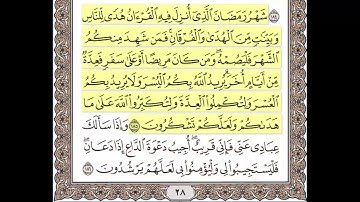 شَهْرُ رَمَضَانَ ٱلَّذِىٓ أُنزِلَ فِيهِ ٱلْقُرْءَانُ هُدًى لِّلنَّاسِ
وَبَيِّنَـٰتٍ مِّنَ ٱلْهُدَىٰ وَٱلْفُرْقَانِ فَمَن شَهِدَ مِنكُمُ
ٱلشَّهْرَ فَلْيَصُمْهُ وَمَن كَانَ مَرِيضًا أَوْ عَلَىٰ سَفَرٍ فَعِدَّةٌ
مِّنْ أَيَّامٍ أُخَرَ يُرِيدُ ٱللَّهُ بِكُمُ ٱلْيُسْرَ وَلَا يُرِيدُ بِكُمُ
ٱلْعُسْرَ وَلِتُكْمِلُوا۟ ٱلْعِدَّةَ وَلِتُكَبِّرُوا۟ ٱللَّهَ عَلَىٰ مَا
هَدَىٰكُمْ وَلَعَلَّكُمْ تَشْكُرُونَ ١٨٥ وَإِذَا سَأَلَكَ
عِبَادِى عَنِّى فَإِنِّى قَرِيبٌ أُجِيبُ دَعْوَةَ ٱلدَّاعِ إِذَا دَعَانِ
فَلْيَسْتَجِيبُوا۟ لِى وَلْيُؤْمِنُوا۟ بِى لَعَلَّهُمْ يَرْشُدُونَ ١٨٦
٢٨